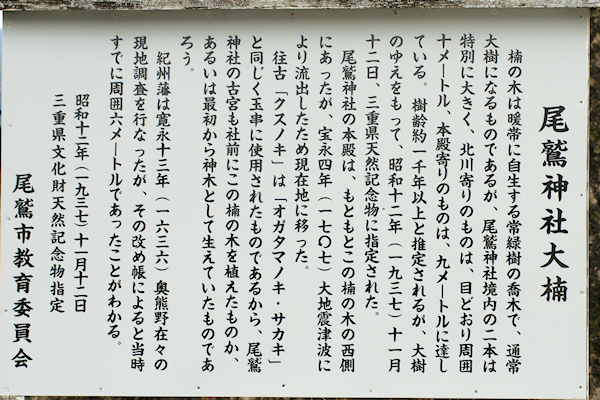 尾鷲神社大楠
楠の木は暖帯に自生する常緑樹の喬木で、通常
大樹になるものであるが、尾鷲神社境内の二本は
特別に大きく、北川寄りのものは、目どおり周囲
十メートル、本殿寄りのものは、九メートルに達し
ている。樹齢約一千年以上と推定されるが、大樹
のゆえをもって、昭和十二年(一九三七)十一月
十二日、三重県天然記念物に指定された。
尾鷲神社の本殿は、もともとこの楠の木の西側
にあったが、宝永四年(一七〇七)大地震津波に
より流出したため現在地に移った。
往古「クスノキ」は「オガタマノキ・サカキ」
と同じく玉串に使用されたものであるから、尾鷲
神社の古宮も社前にこの楠の木を植えたものか、
あるいは最初から神木として生えていたものであ
ろう。
紀州藩は寛永十三年(一六三六)奥熊野在々の
現地調査を行なったが、その改め帳によると当時
すでに周囲六メートルであったことがわかる。
昭和十二年(一九三七)十一月十二日
三重県文化財天然記念物指定
尾鷲市教育委員会